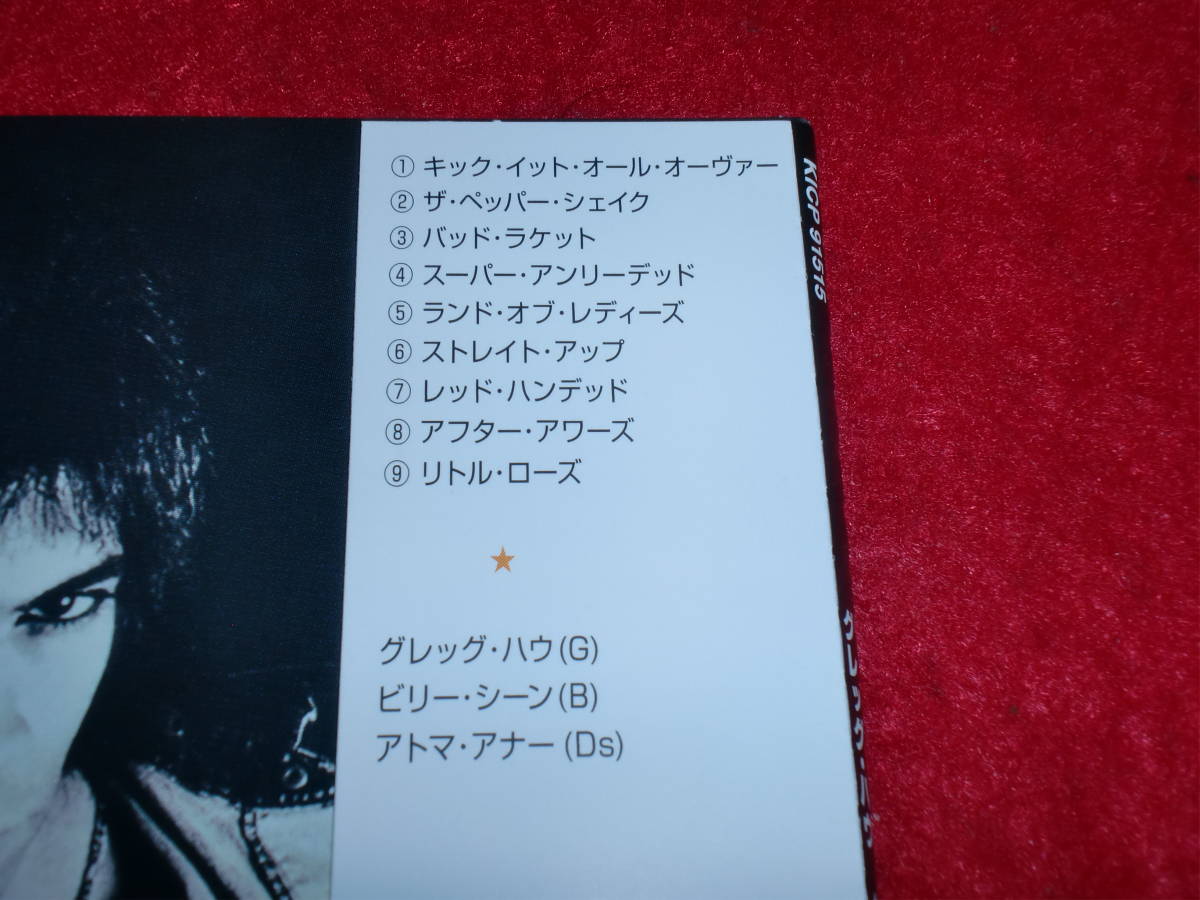 ① キック・イット・オール・オーヴァー
② ザ・ペッパー・シェイク
③ バッド・ラケット
④ スーパー・アンリーデッド
⑤ ランド・オブ・レディーズ
⑥ ストレイト・アップ
⑦ レッド・ハンデッド
⑧ アフター・アワーズ
⑨ リトル・ローズ
★
グレッグ・ハウ(G)
ビリー・シーン(B)
アトマ・アナー(Ds)
KICP 91515
グレッグ・ハウ